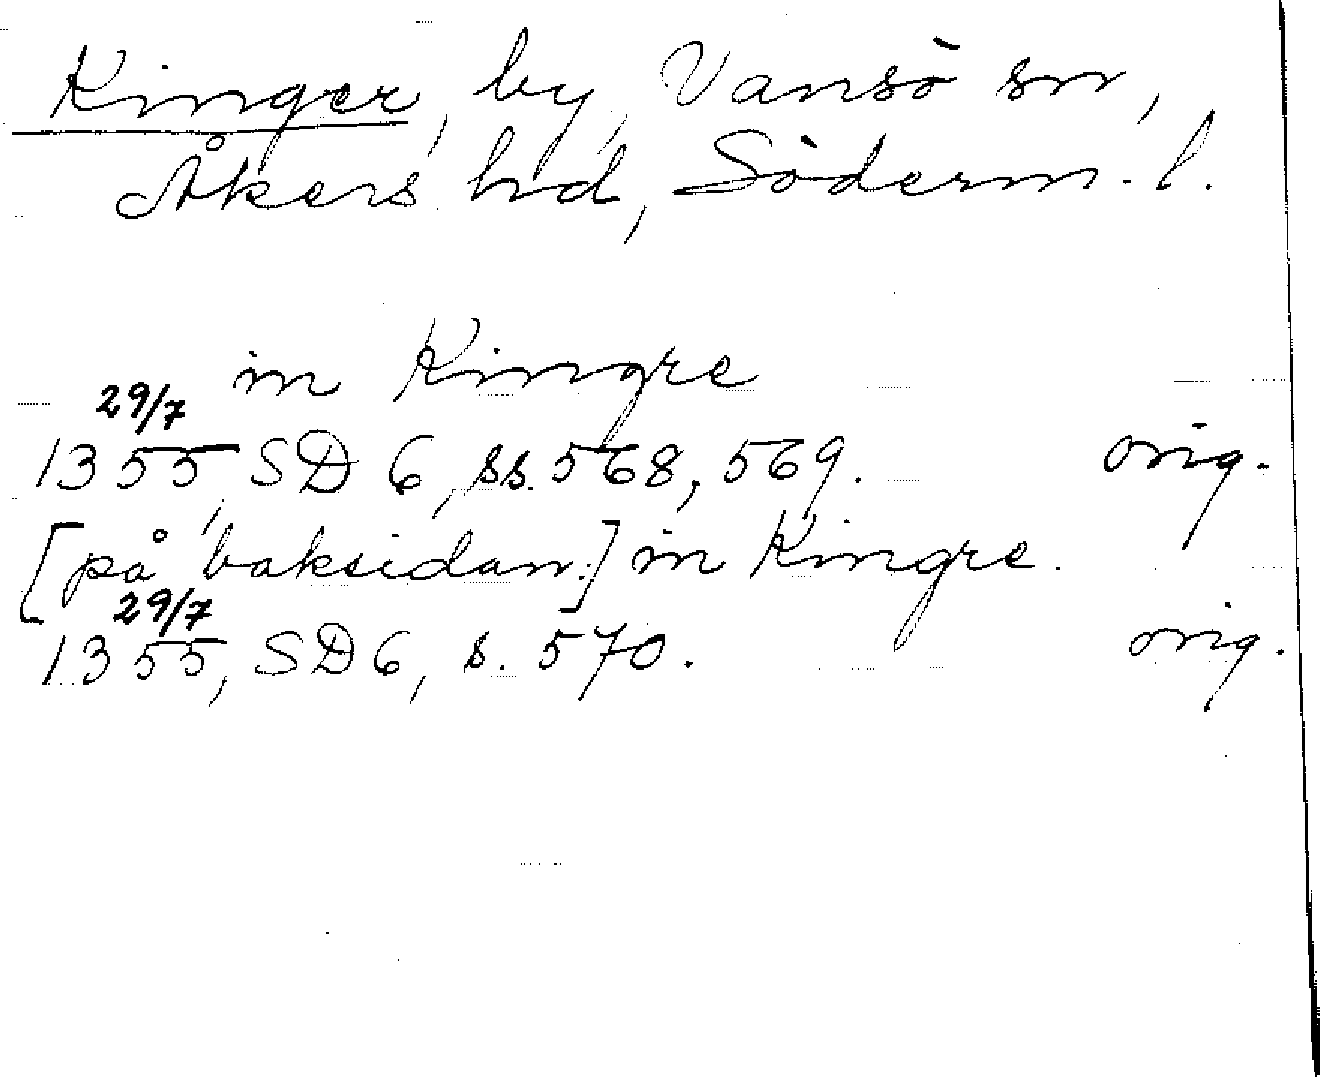 Kinger, by, Vansö sn,
Åkers hd, Söderm. l.
in Kingre
29/7
1355, SD 6, ss. 568, 569. orig.
[på baksidan:] in Kingre.
29/7
1355, SD 6, s. 570. orig.